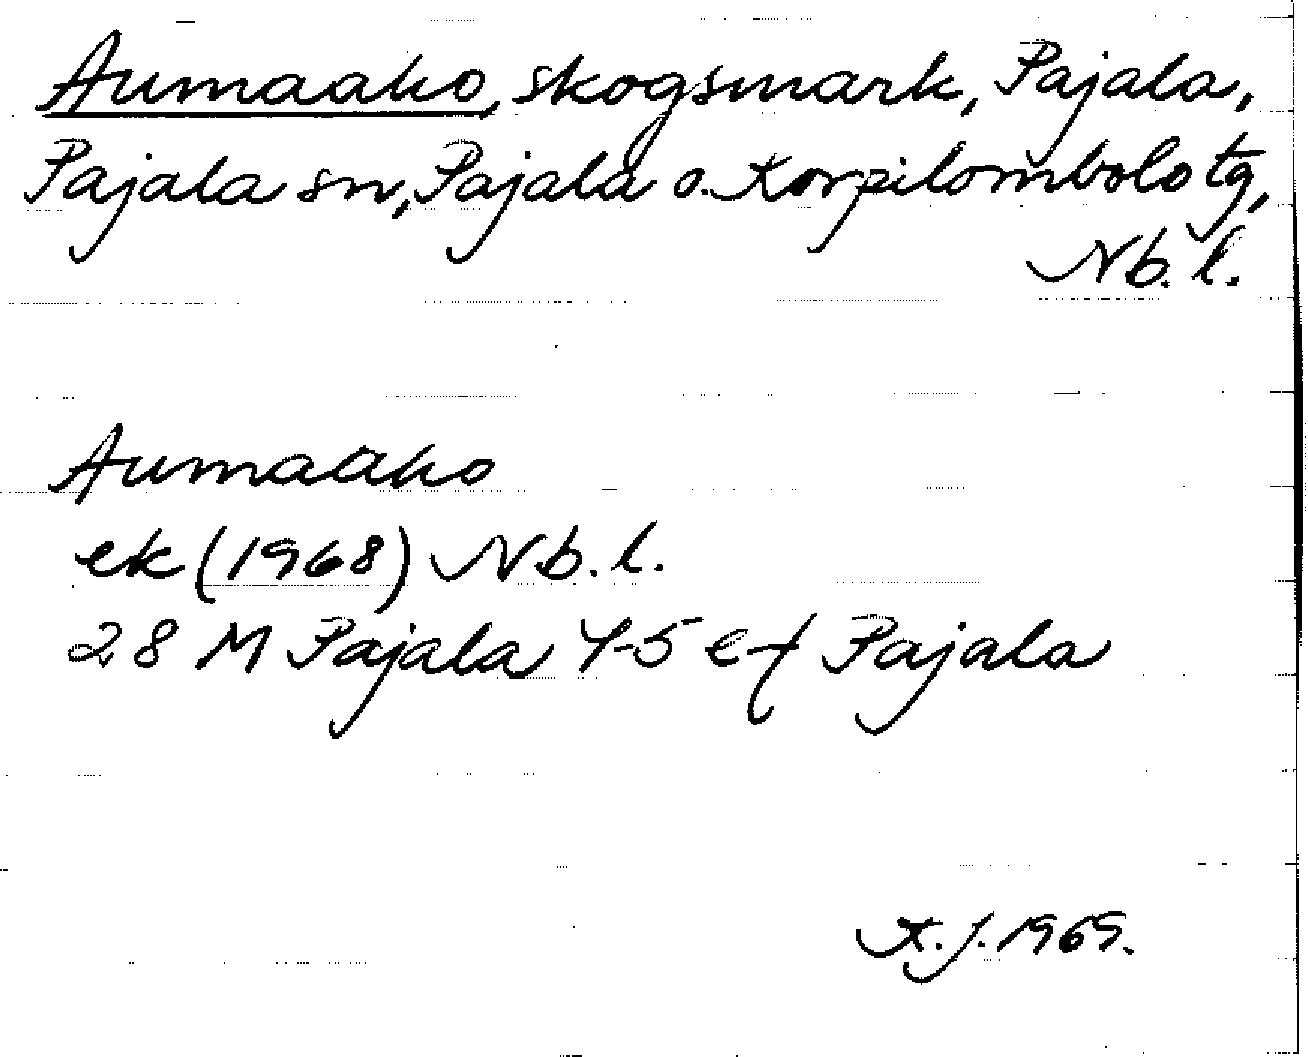 Aumaaho, skogsmark, Pajala,
Pajala sn, Pajala o. Korpilombolo tg,
Nb. l.
Aumaaho
ek (1968) N.b. l.
28 M Pajala 4-5 e-f Pajala
K. J. 1969.